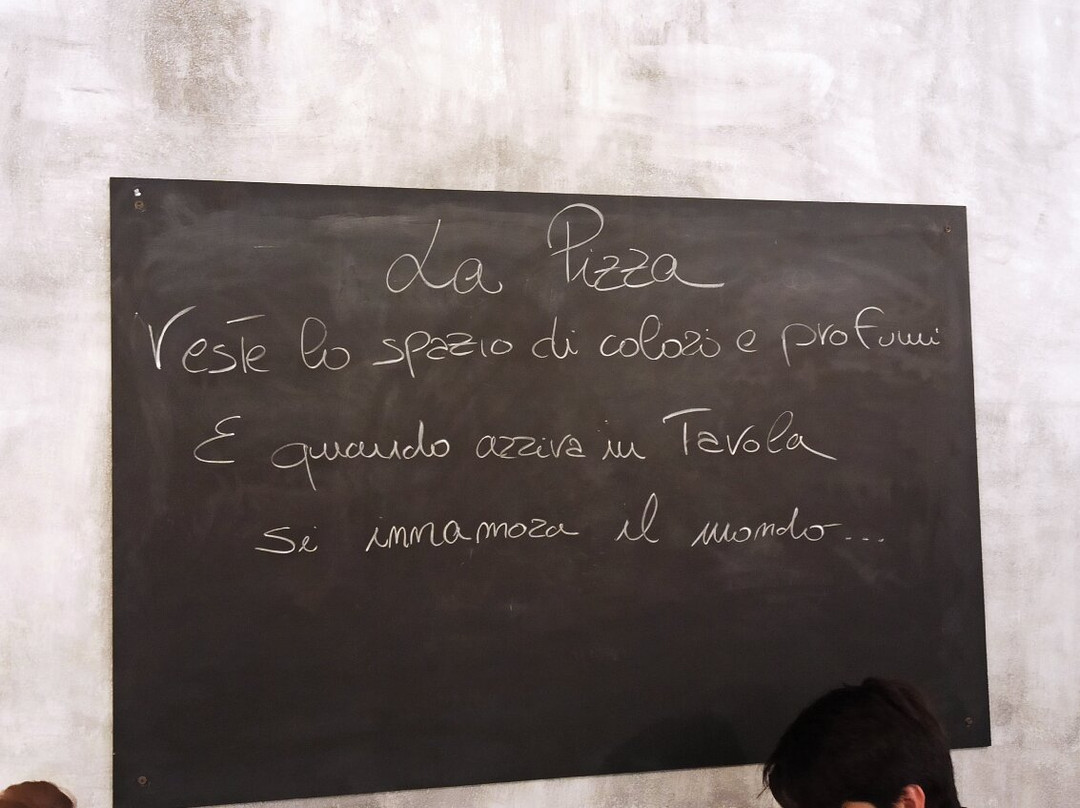 La Pizza
Veste lo spazio di colori e profumi
E quando arriva in Tavola
si innamora il mondo...